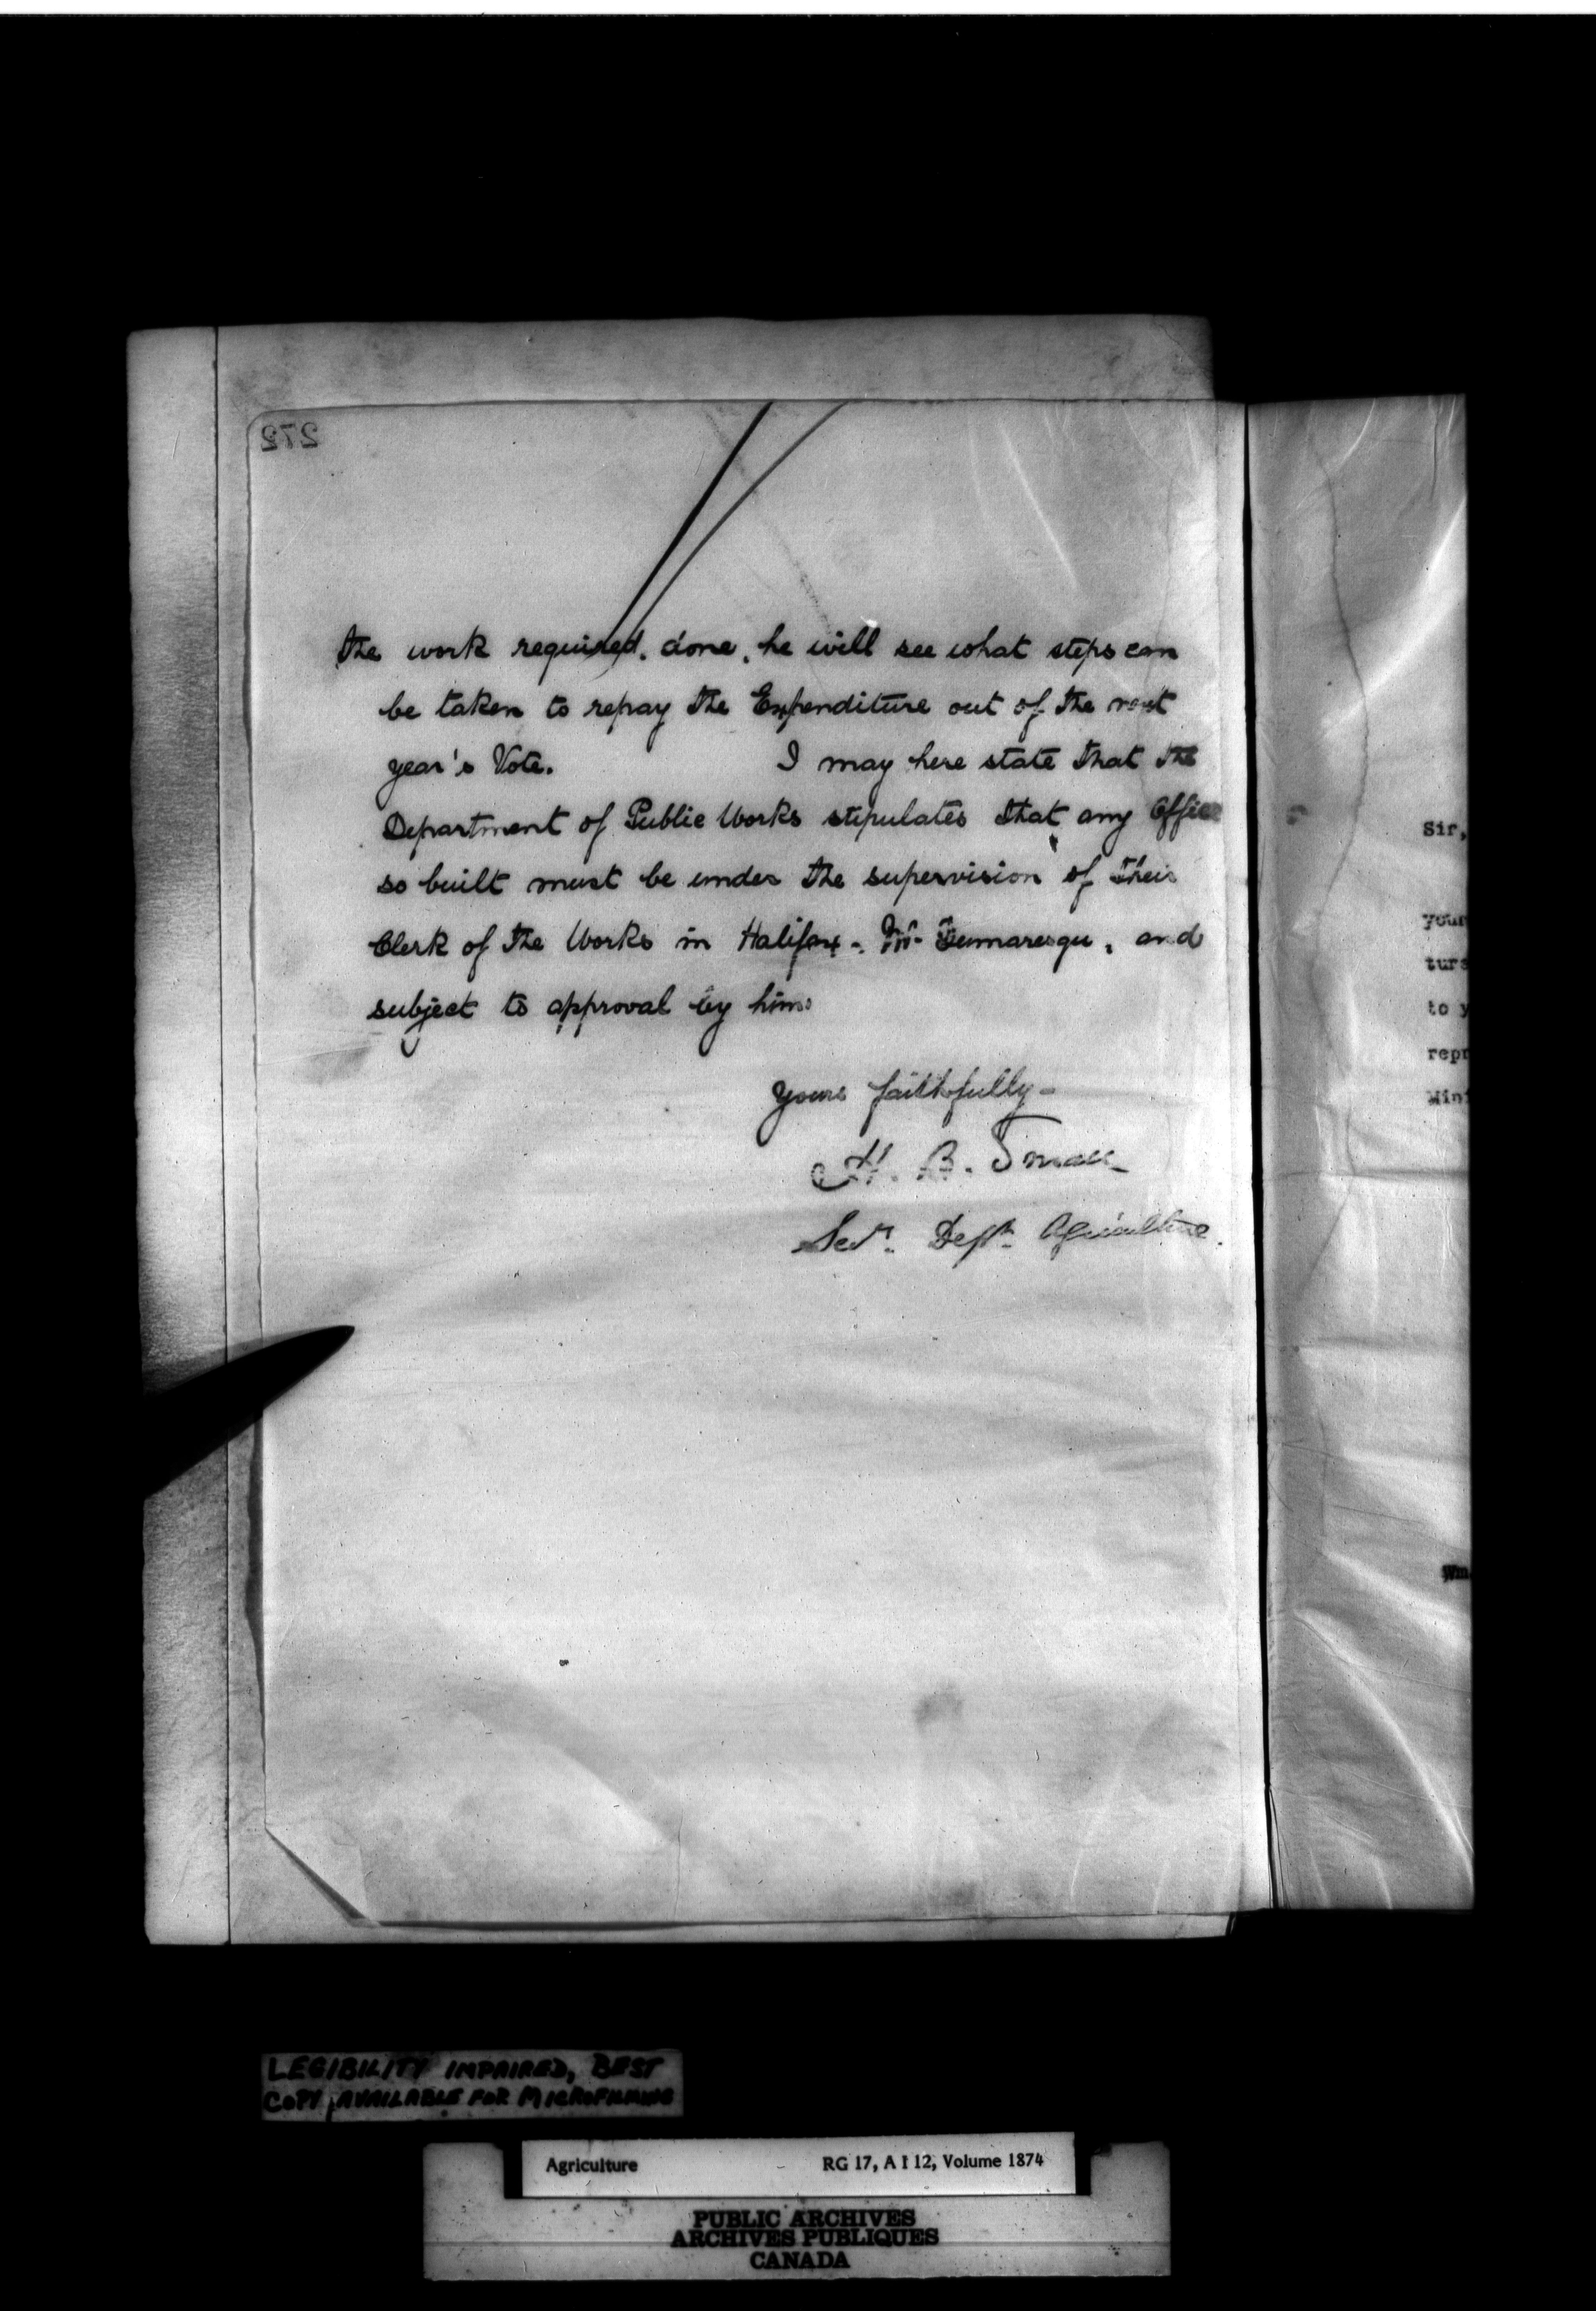 272
the work required, done, he will see what steps can
be taken to repay the Expenditure out of the next
year's Vote. I may here state that the
Department of Public Works stipulates that any Office
so built must be under the supervision of their
Clerk of the Works in Halifax - Mr. Dumaresqu, and
subject to approval by him.
Yours faithfully -
H. B. Small
Secy. Dept. Agriculture.
Sir,
your
ture
to y
repr
Mini
Wm
LEGIBILITY IMPAIRED, BEST
COPY AVAILABLE FOR MICROFILMING
Agriculture RG 17, A I 12, Volume 1874
PUBLIC ARCHIVES
ARCHIVES PUBLIQUES
CANADA